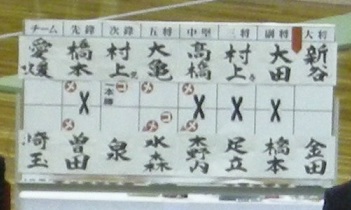 チーム 先鋒 次鋒 五将 中堅 三将 副将 大将
愛媛 橋本 村上 大亀 高橋 村上 大田 新谷
メ コ メ メ
一本勝
メ メ コ メ
埼玉 曽田 泉 水森 森内 足立 橋本 金田